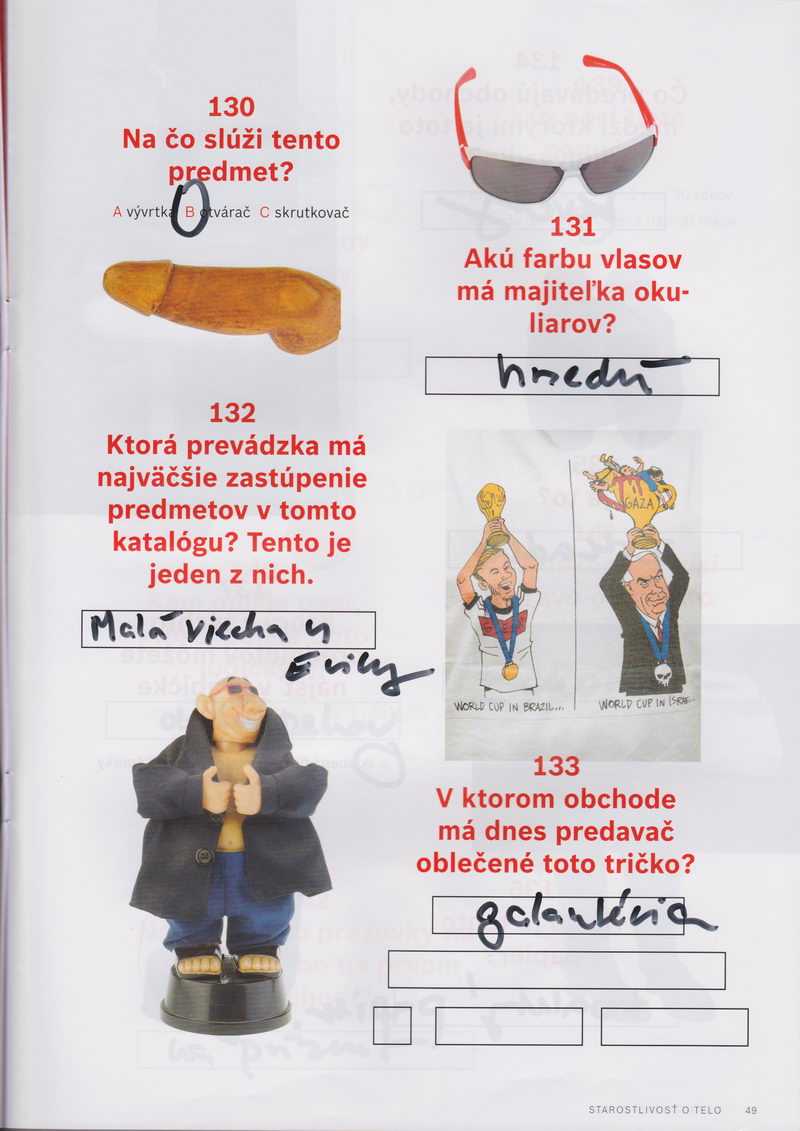 130
Na čo slúži tento
predmet?
A vývrtka B otvárač C skrutkovač
131
Akú farbu vlasov
má majiteľka oku-
liarov?
hnedú
132
Ktorá prevádzka má
najväčšie zastúpenie
predmetov v tomto
katalógu? Tento je
jeden z nich.
Malá viecha u
Eriky
GAZA
WORLD CUP IN BRAZIL...
WORLD CUP IN ISRE
133
V ktorom obchode
má dnes predavač
oblečené toto tričko?
galantéria
STAROSTLIVOSŤ O TELO 49